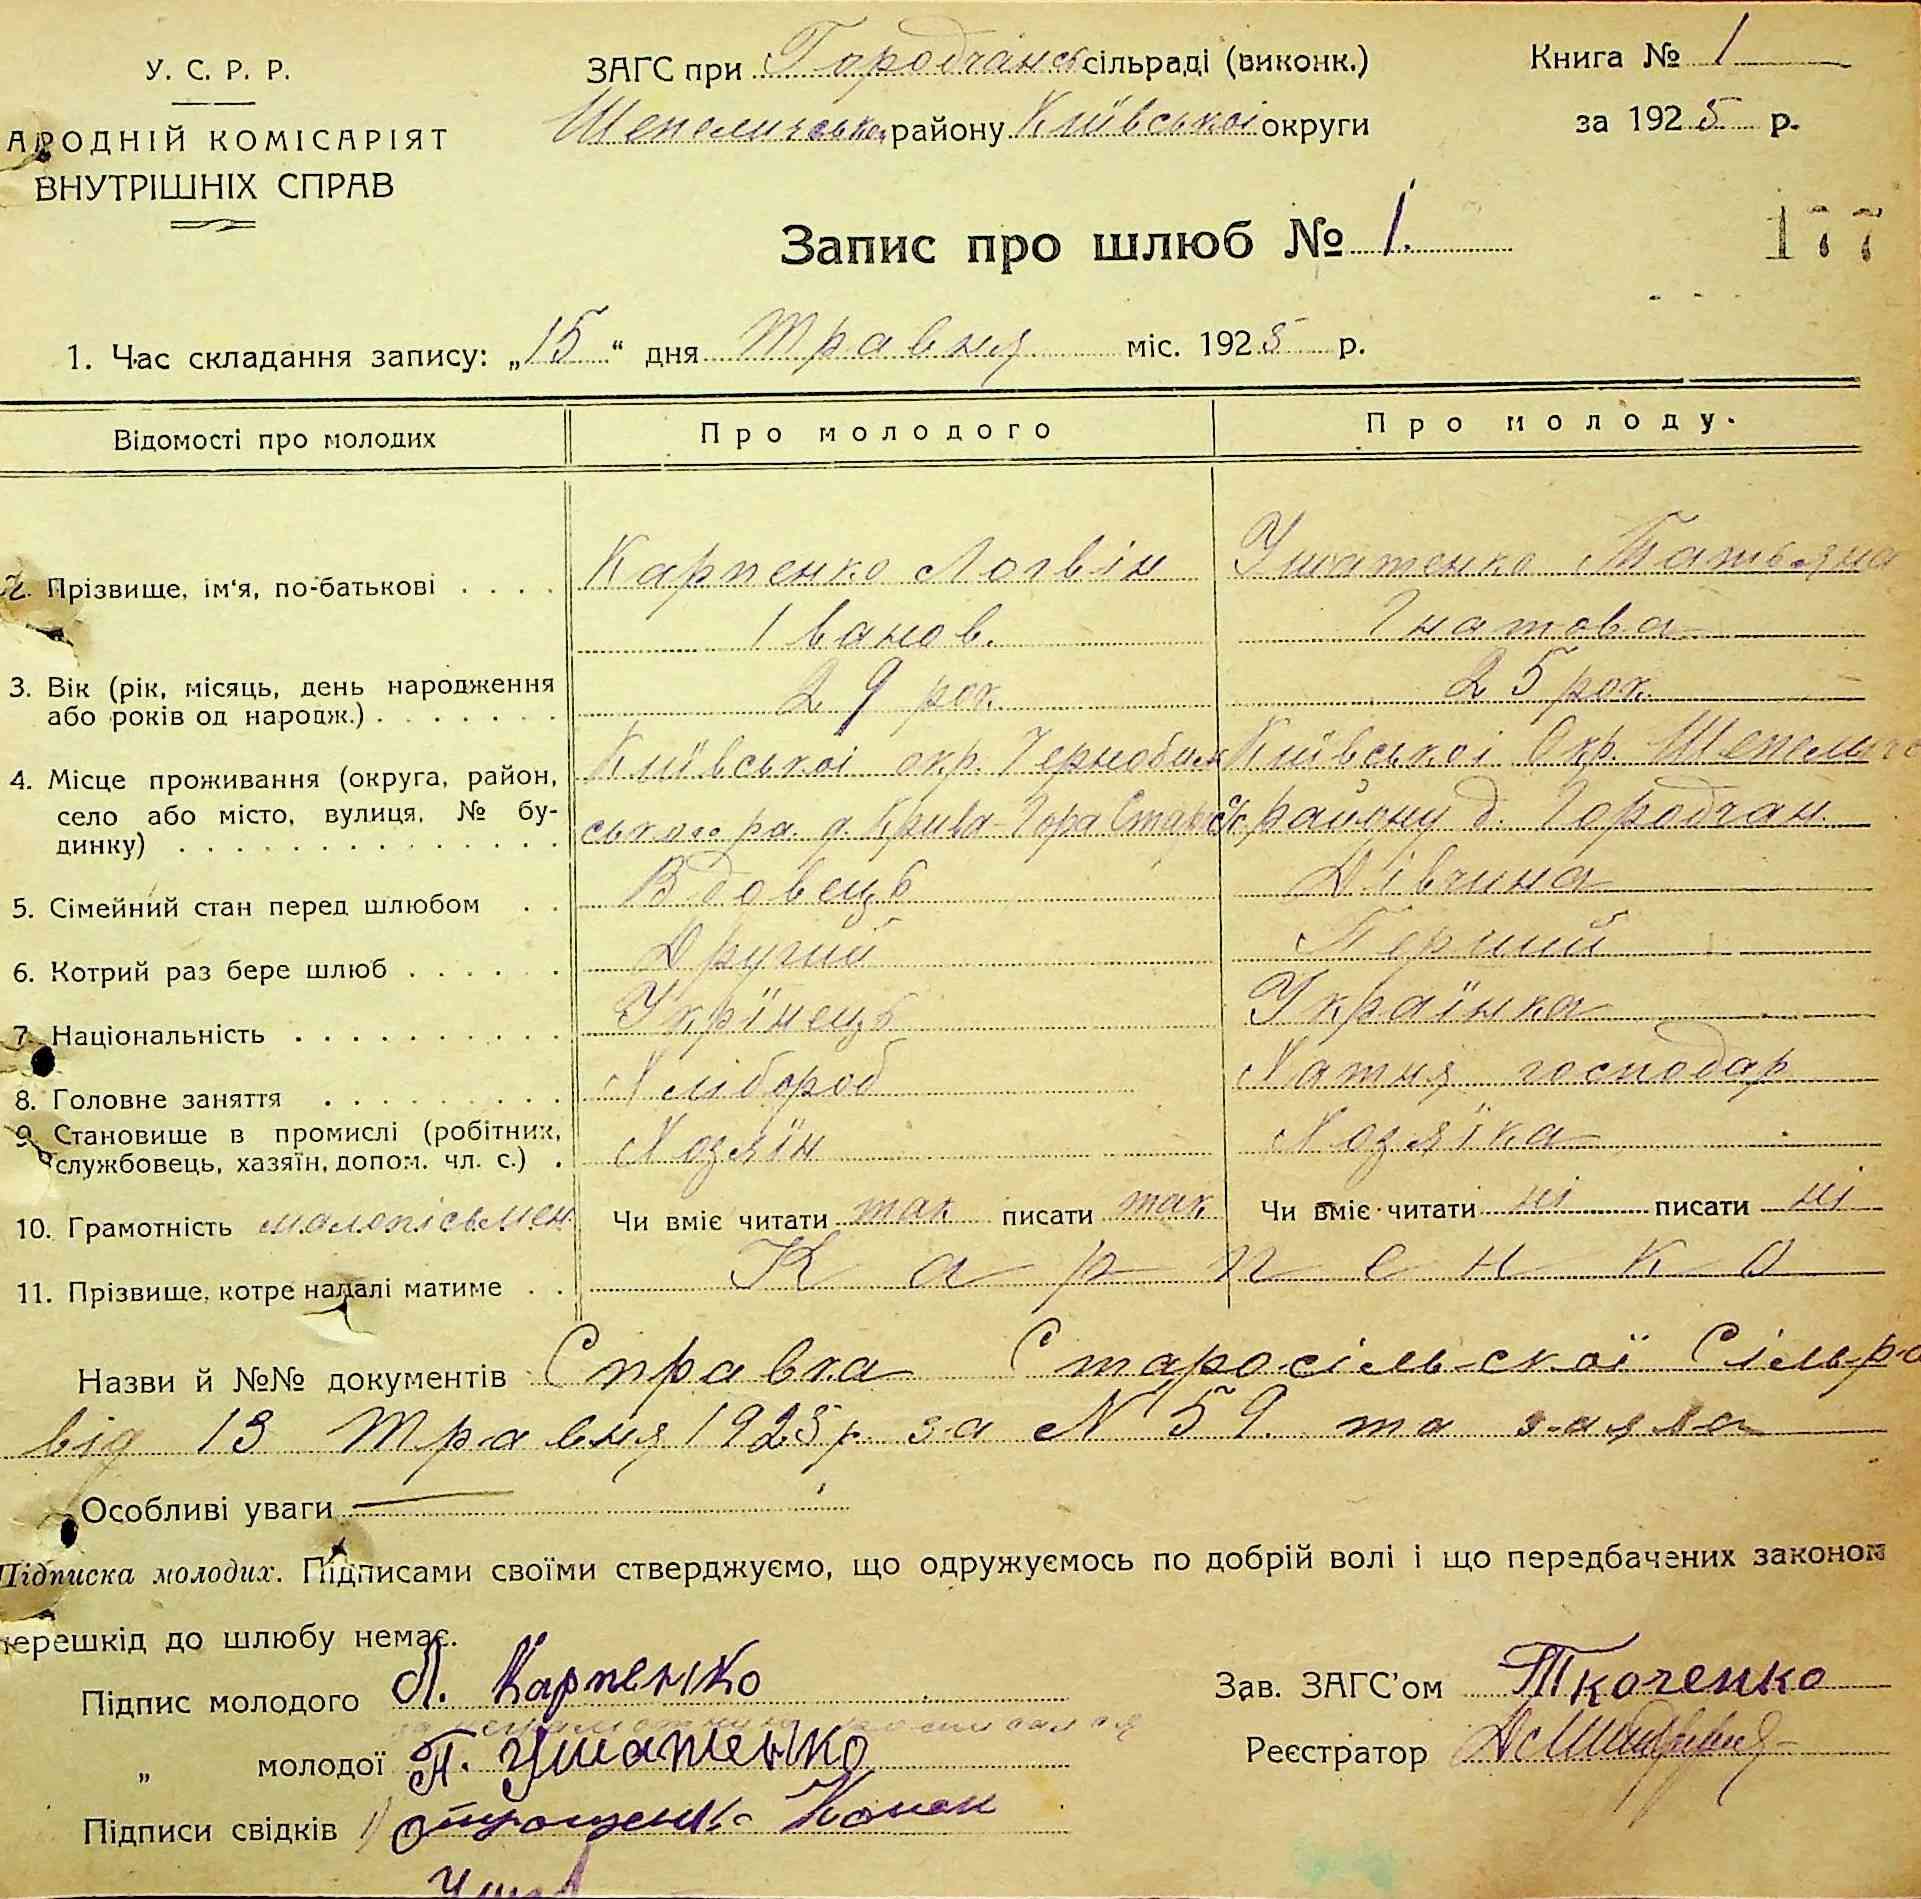 У. С. Р. Р.
АРОДНІЙ КОМІСАРІЯТ
ВНУТРІШНІХ СПРАВ
ЗАГС при Городчанськ сільраді (виконк.)
Шепеличськ району Київської округи
Книга № 1
за 1925 р.
Запис про шлюб № 1.
177
1. Час складання запису: „15“ дня Травня міс. 1925 р.
Відомості про молодих Про молодого Про молоду.
2. Прізвище, ім‘я, по-батькові . . . . Карпенко Логвін Ушатенко Татьяна
Іванов. Гнатова
3. Вік (рік, місяць, день народження 29 рок. 25 рок.
або років од народж.) . . . . . . .
4. Місце проживання (округа, район, Київськоі окр. Чернобиль Київськоі Окр. Шепелич
село або місто, вулиця, № бу- ського ра. д. Крива-Гора Старос району д. Городчан.
динку) . . . . . . . . . . . . . .
5. Сімейний стан перед шлюбом . . Вдовець Дівчина
6. Котрий раз бере шлюб . . . . . . Другий Перший
7. Національність . . . . . . . . . . Укрїнець Українка
8. Головне заняття . . . . . . . . . Хлібороб Хатня господар
9. Становище в промислі (робітник, Хозяїн Хозяїка
службовець, хазяїн, допом. чл. с.) .
10. Грамотність малопісьмен Чи вміє читати так писати так Чи вміє читати ні писати ні
11. Прізвище, котре надалі матиме . . Карпенко
Назви й №№ документів Справка Старосільскої Сільра
від 13 Травня 1925 р. за N 59. та заява
Особливі уваги
Підписка молодих. Підписами своїми стверджуємо, що одружуємось по добрій волі і що передбачених законом
перешкід до шлюбу немає.
Підпис молодого Л. Карпенко
Зав. ЗАГС’ом Ткоченко
за неграмотную росписался
„ молодої Т. Ушатенко
Реєстратор
Підписи свідків 1)